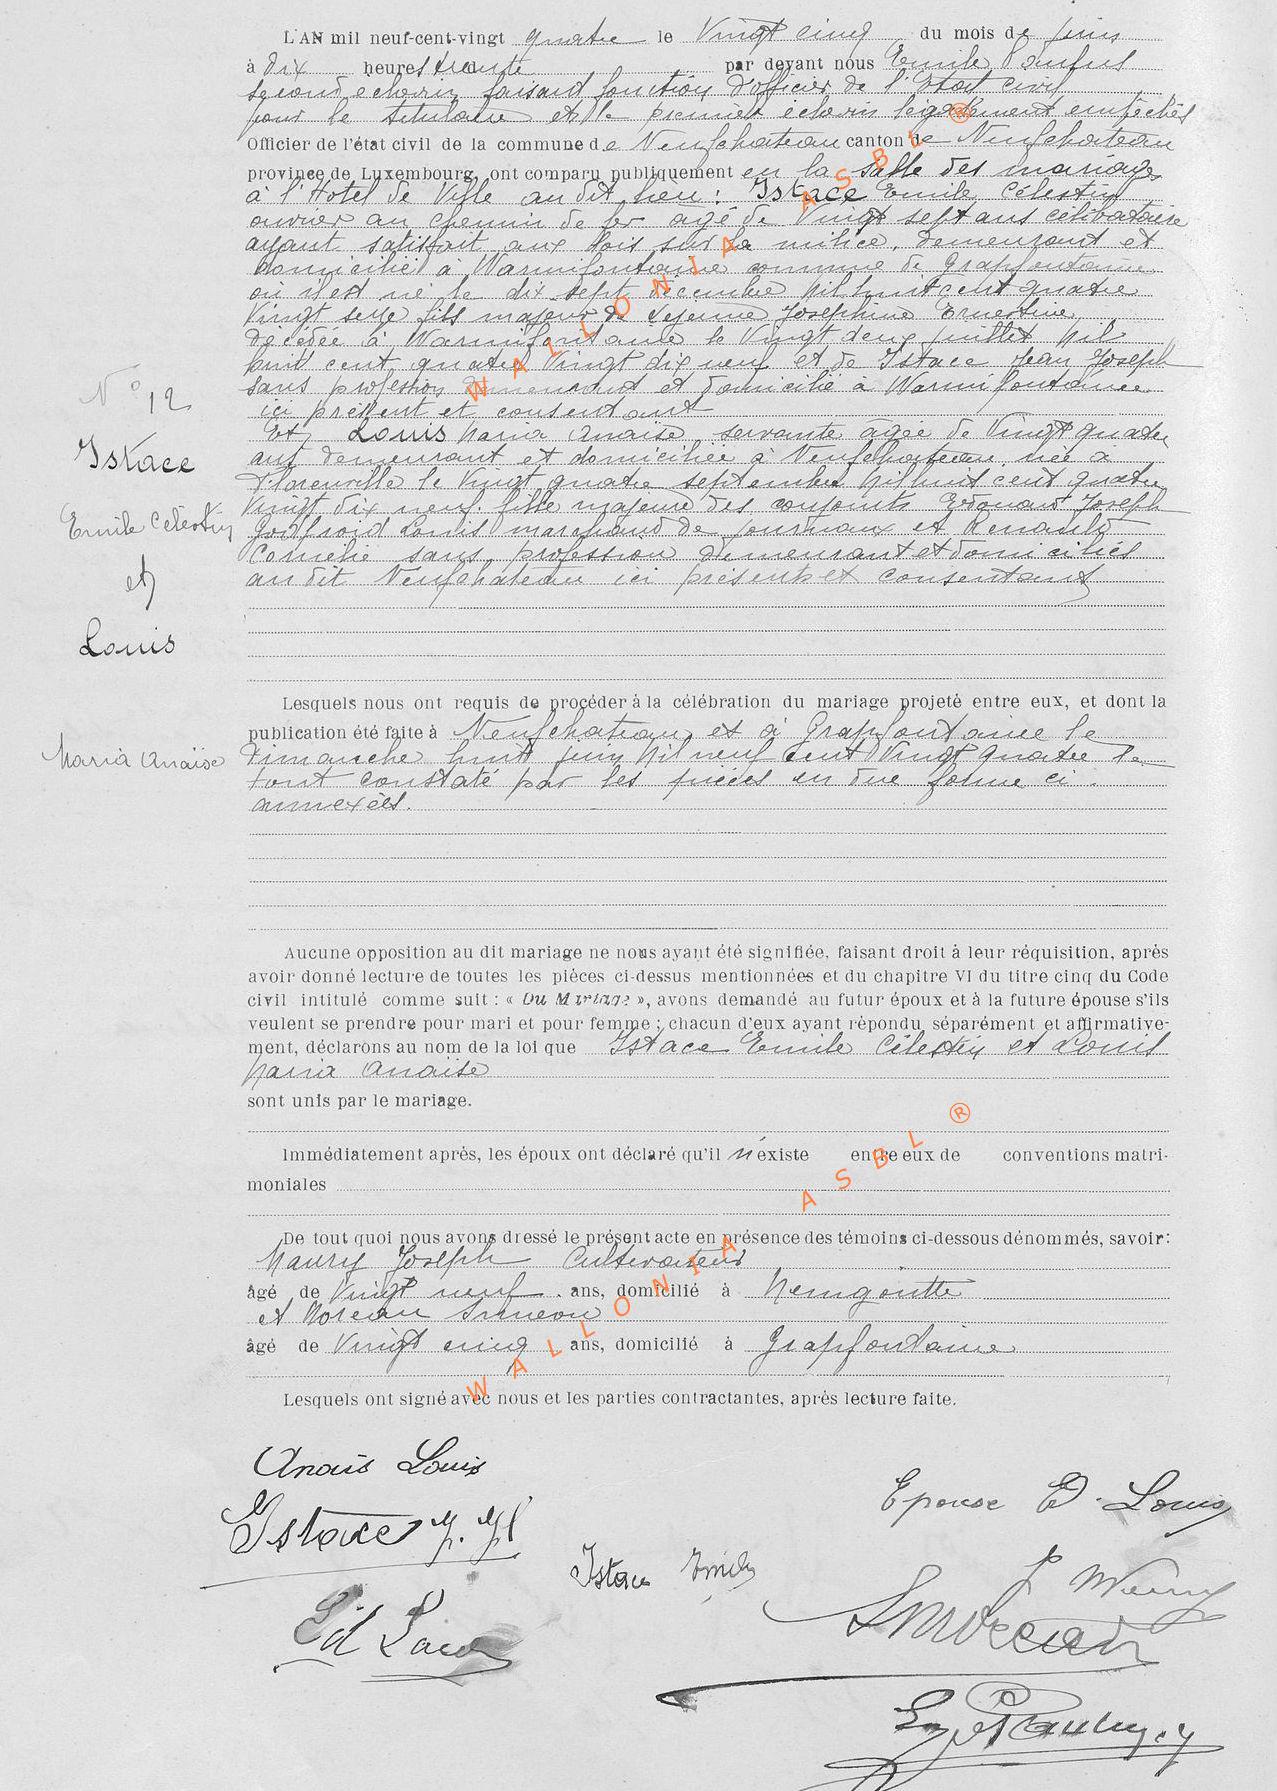 L'AN mil neuf-cent-vingt quatre le Vingt cinq du mois de juin
à dix heures trente par devant nous Emile
second échevin faisant fonction d'officier de l'Etat civil
pour le titulaire et le premier échevin légalement empêchés
Officier de l'état civil de la commune de Neufchateau canton de Neufchateau
province de Luxembourg, ont comparu publiquement en la salle des mariages
à l'Hotel de Ville au dit lieu : Istace Emile Célestin
ouvrier au chemin de fer agé de Vingt sept ans célibataire
ayant satisfait aux lois sur la milice, demeurant et
domicilié à Warmifontaine commune de Grapfontaine
où il est né le dix sept décembre Mil huit cent quatre
Vingt seize fils majeur de Lejeune Joséphine Ernestine
décédée à Warmifontaine le Vingt deux juillet Mil
huit cent quatre Vingt dix neuf et de Istace Jean Joseph
sans profession demeurant et domicilié à Warmifontaine
ici présent et consentant
Et Louis Maria Anaïse servante agée de Vingt quatre
ans demeurant et domiciliée à Neufchateau, née à
Florenville le Vingt quatre septembre Mil huit cent quatre
Vingt dix neuf fille majeure des conjoints Edouard Joseph
Godfroid Louis marchand de journaux et Renauld
Cornélie sans profession demeurant et domiciliés
au dit Neufchateau ici présents et consentants
N° 12
Istace
Emile Célestin
et
Louis
Maria Anaïse
Lesquels nous ont requis de procéder à la célébration du mariage projeté entre eux, et dont la
publication été faite à Neufchateau et à Grapfontaine le
Dimanche huit juin Mil neuf cent Vingt quatre le
tout constaté par les pièces en due forme ci-
annexées.
Aucune opposition au dit mariage ne nous ayant été signifiée, faisant droit à leur réquisition, après
avoir donné lecture de toutes les pièces ci-dessus mentionnées et du chapitre VI du titre cinq du Code
civil intitulé comme suit : « Du Mariage », avons demandé au futur époux et à la future épouse s'ils
veulent se prendre pour mari et pour femme ; chacun d'eux ayant répondu séparément et affirmative-
ment, déclarons au nom de la loi que Istace Emile Célestin et Louis
Maria Anaise
sont unis par le mariage.
Immédiatement après, les époux ont déclaré qu'il n'existe entre eux de conventions matri-
moniales
De tout quoi nous avons dressé le présent acte en présence des témoins ci-dessous dénommés, savoir:
Maury Joseph Cultivateur
âgé de Vingt neuf ans, domicilié à Hemgoutte
et Moreau Siméon
âgé de Vingt cinq ans, domicilié à Grapfontaine
Lesquels ont signé avec nous et les parties contractantes, après lecture faite.
Anaïs Louis
Epouse E. Louis
Istace J. Jh
Istace Emile
Ed Louis
WALLONIA ASBL ®
WALLONIA ASBL ®